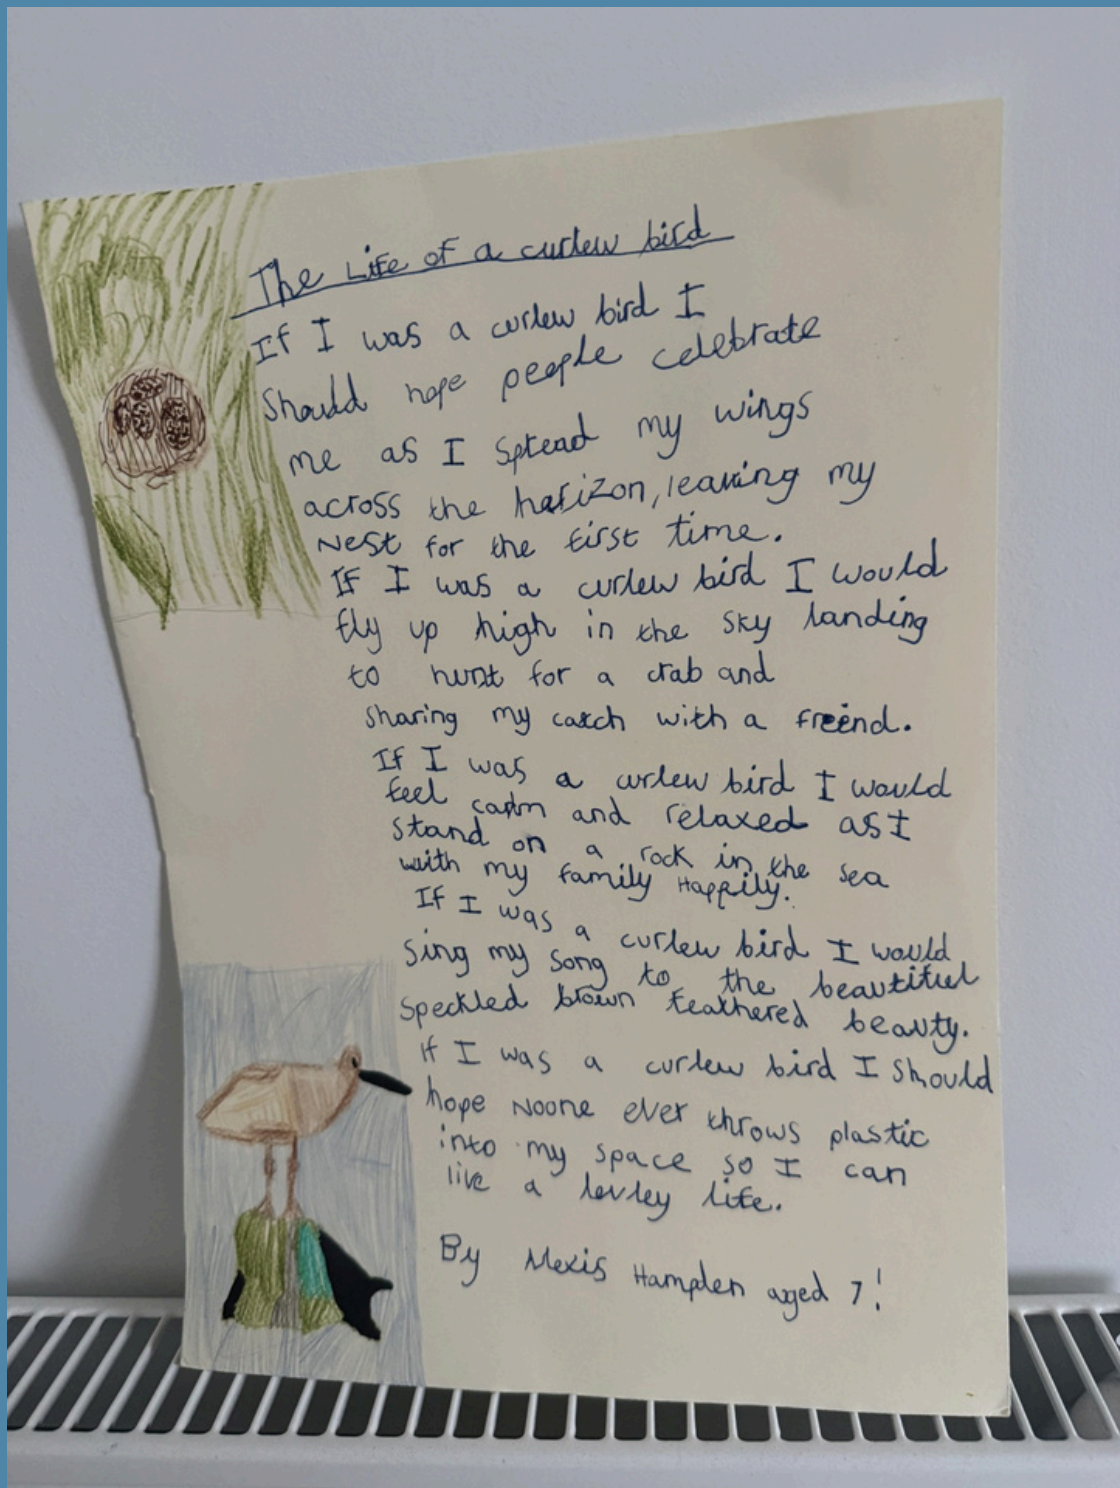 The Life of a curlew bird
If I was a curlew bird I
Should hope people celebrate
me as I spread my wings
across the horizon, leaving my
Nest for the first time.
If I was a curlew bird I would
fly up high in the sky landing
to hunt for a crab and
Sharing my catch with a freend.
If I was a curlew bird I would
feel calm and relaxed as I
stand on a rock in the sea
with my family Happily.
If I was a curlew bird I would
Sing my song to the beautiful
Speckled brown feathered beauty.
If I was a curlew bird I Should
hope Noone ever throws plastic
into my space so I can
live a lovley life.
By Alexis Hampden aged 7!